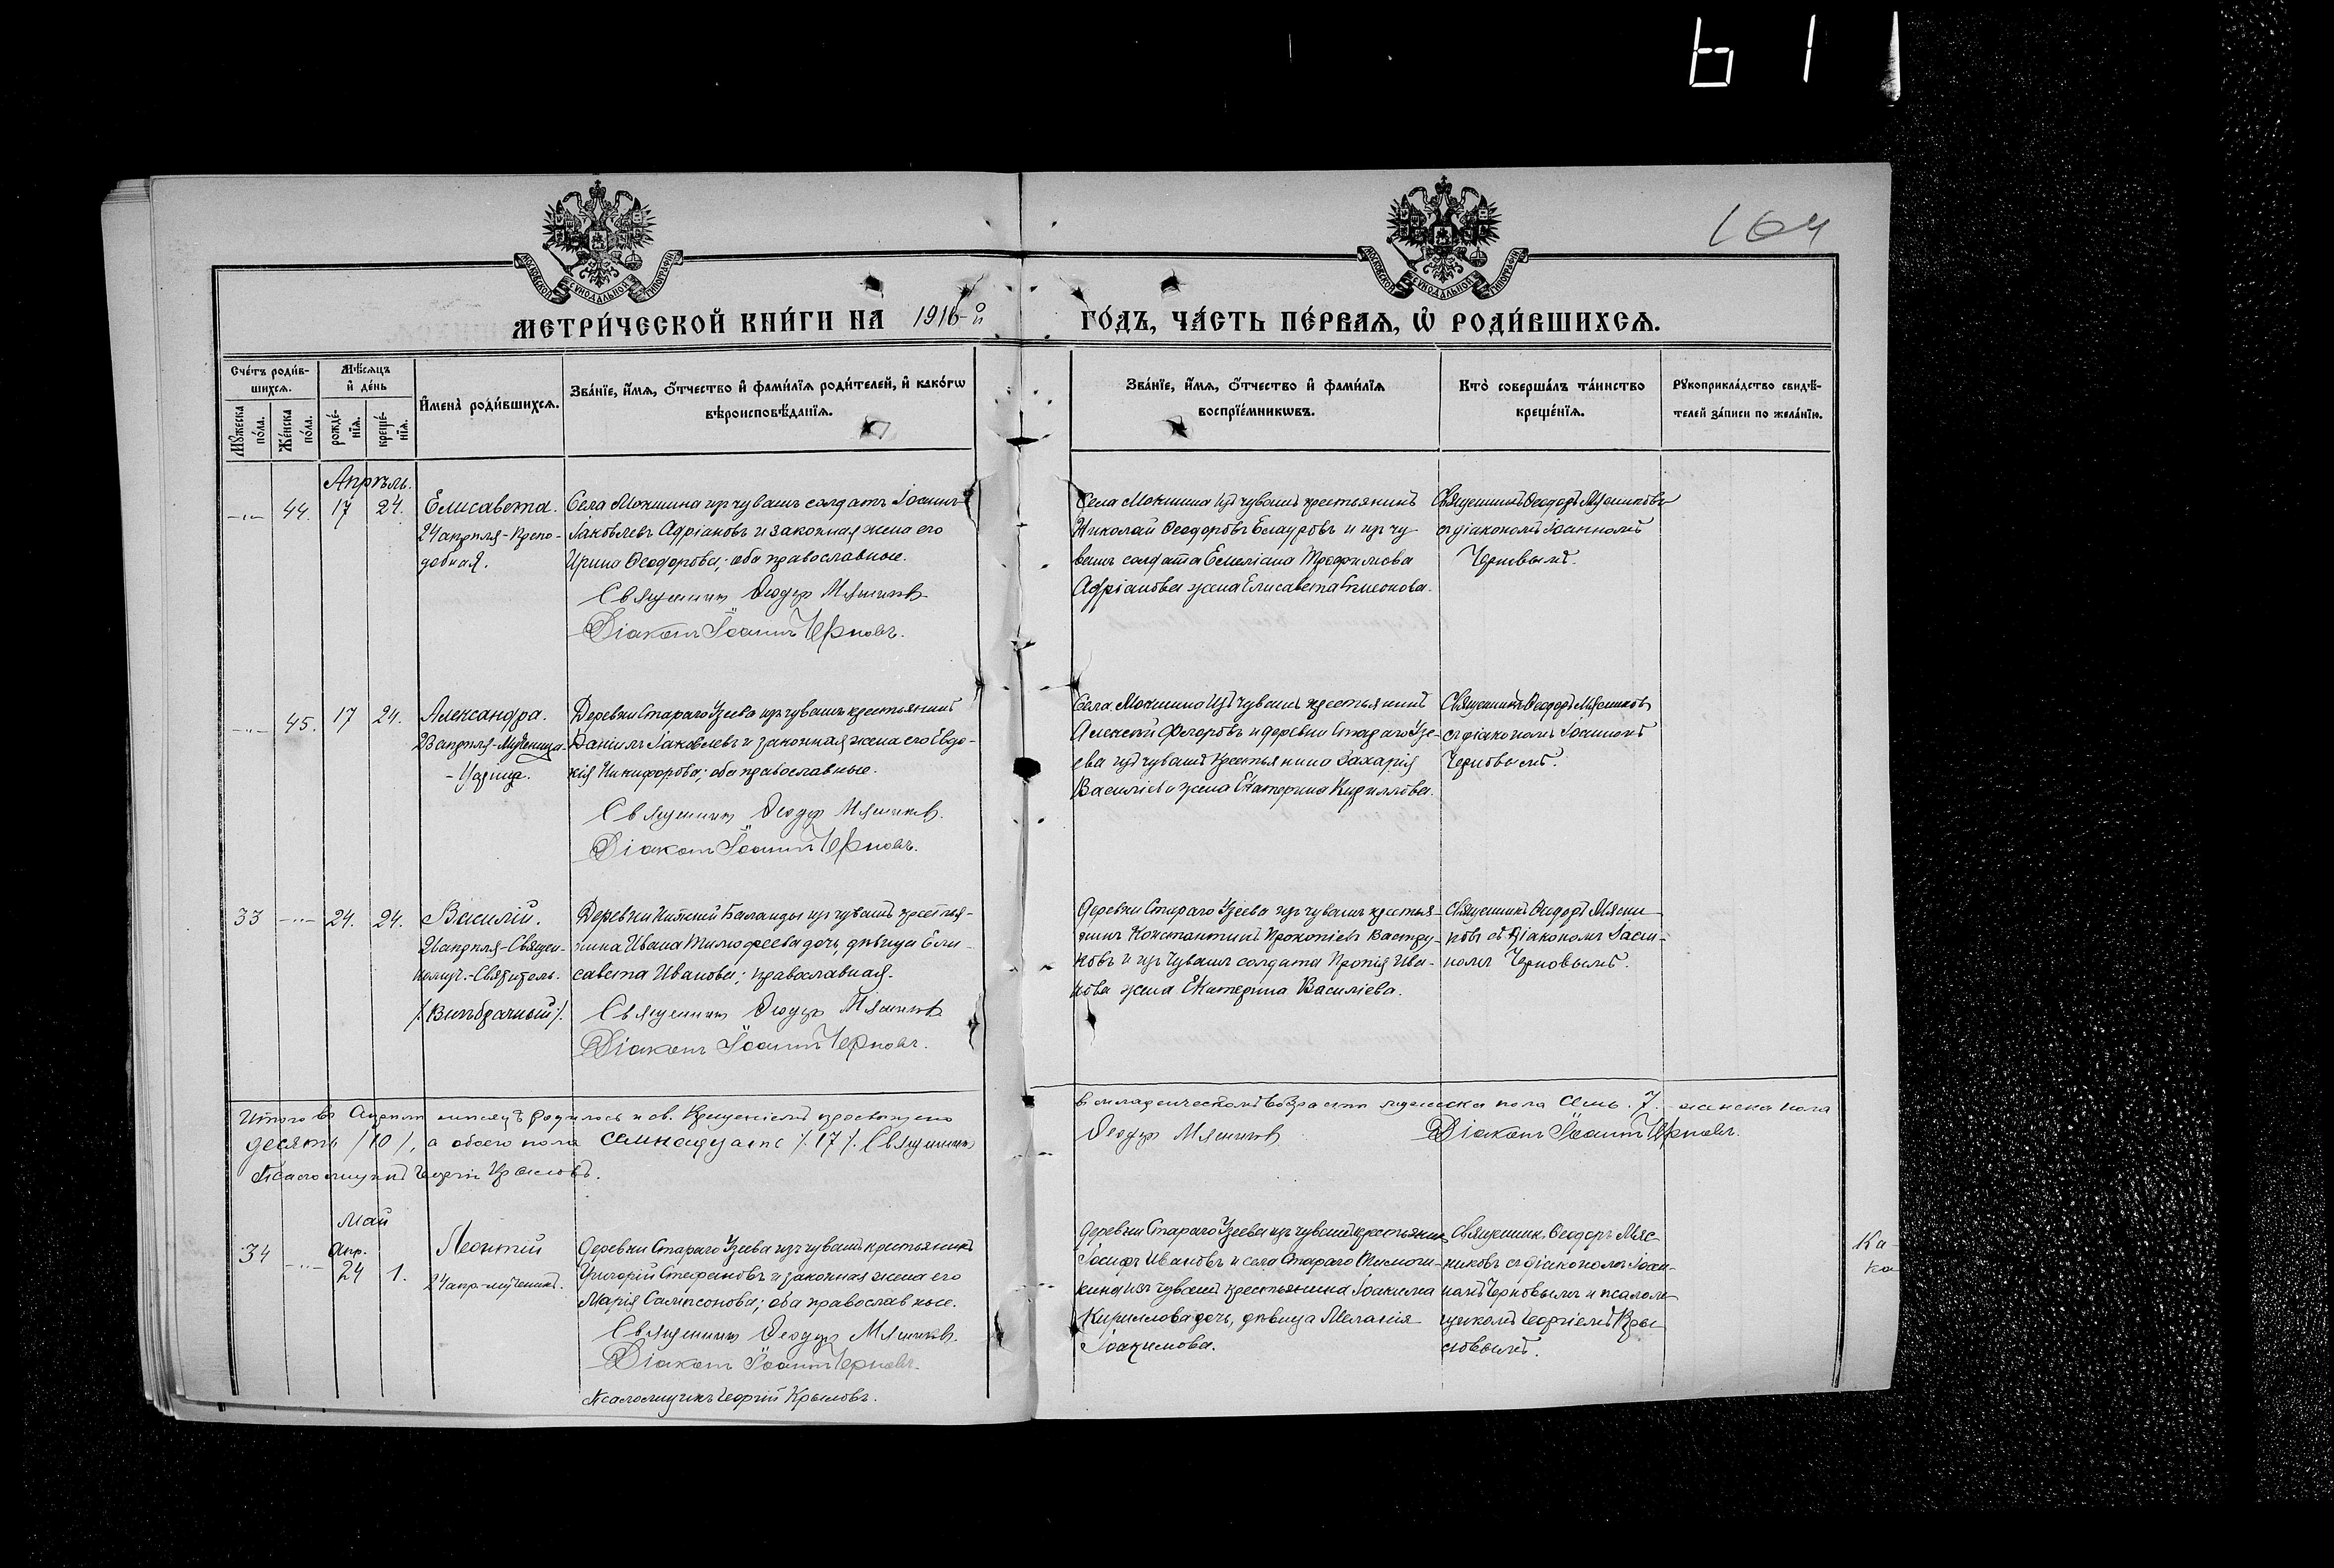 611
164
МОСКОВСКОЙ СУНОДАЛЬНОЙ ТИПОГРАФІИ
МОСКОВСКОЙ СУНОДАЛЬНОЙ ТИПОГРАФІИ
МЕТРИ́ЧЕСКОЙ КНИ́ГИ НА 1916-й ГО́ДЪ, ЧА́СТЬ ПЕ́РВАѦ, Ѡ҆ РОДИ́ВШИХСѦ.
Сче́тъ роди́в-
шихсѧ.
Мꙋ́жеска по́ла.
Же́нска по́ла.
Мѣ́сѧцъ
и҆ де́нь
рожде́-
нїѧ.
креще́-
нїѧ.
И҆мена̀ роди́вшихсѧ.
Зва́нїе, и҆́мѧ, ѻ҆́тчество и҆ фами́лїѧ роди́телей, и҆ како́гѡ
вѣроисповѣ́данїѧ.
Зва́нїе, и҆́мѧ, ѻ҆́тчество и҆ фами́лїѧ
воспрїе́мникѡвъ.
Кто̀ соверша́лъ та́инство
креще́нїѧ.
Рꙋкоприкла́дство свидѣ́-
телей за́писи по жела́нїю.
Апрѣль.
44. 17 24.
Елисавета.
24 апрѣля - Препо-
добная.
Села Мокшина изъ чувашъ солдатъ Іоаннъ
Іаковлевъ Адріановъ и законная жена его
Ирина Ѳеодорова; оба православные.
Священникъ Ѳеодоръ Мясниковъ
Діаконъ Іоаннъ Черновъ.
Села Мокшина изъ чувашъ крестьянинъ
Николай Ѳеодоровъ и изъ чу
вашъ солдата Емеліана Трофимова
Адріанова жена Елисавета Симеонова.
Священникъ Ѳеодоръ Мясниковъ
съ діакономъ Іоанномъ
Черновымъ.
45. 17 24.
Александра.
23 апрѣля - Мученица
- Царица.
Деревни Стараго Узеева изъ чувашъ крестьянинъ
Даніилъ Іаковлевъ и законная жена его Евдо-
кія Никифорова; оба православные.
Священникъ Ѳеодоръ Мясниковъ.
Діаконъ Іоаннъ Черновъ.
Села Мокшина изъ чувашъ крестьянинъ
Алексѣй Ѳеодоровъ и деревни Стараго Узе-
ева изъ чувашъ крестьянина Захарія
Василіева жена Екатерина Кириллова.
Священникъ Ѳеодоръ Мясниковъ
съ діакономъ Іоанномъ
Черновымъ.
33 24. 24.
Василій.
апрѣля - Священ-
номуч. - Святитель.
/Внѣбрачный/.
Деревни Нижней Баланды изъ чувашъ крестья-
нина Ивана Тимофеева дочь, дѣвица Ели-
савета Иванова; православная.
Священникъ Ѳеодоръ Мясниковъ
Діаконъ Іоаннъ Черновъ.
Деревни Стараго Узеева изъ чувашъ крестья-
нинъ Константинъ Прокопіевъ Вастру-
ковъ и изъ чувашъ солдата Ива-
нова жена Екатерина Василіева.
Священникъ Ѳеодоръ Мясни-
ковъ съ діакономъ Іоан-
номъ Черновымъ.
Итого въ Апрѣлѣ мѣсяцѣ родилось и св. Крещеніемъ просвѣщено въ младенческомъ возрастѣ мужеска пола семь /7/ женска пола
десять /10/, а обоего пола семнадцать /17/. Священникъ Ѳеодоръ Мясниковъ Діаконъ Іоаннъ Черновъ.
Псаломщикъ Георгій Крыловъ.
Май
34 Апр. 24 1.
Леонтій
24 апр. - мученикъ.
Деревни Стараго Узеева изъ чувашъ крестьянинъ
Григорій Стефановъ и законная жена его
Марія Сампсонова; оба православные.
Священникъ Ѳеодоръ Мясниковъ.
Діаконъ Іоаннъ Черновъ.
Псаломщикъ Георгій Крыловъ.
Деревни Стараго Узеева изъ чувашъ крестьянинъ
Іосифъ Ивановъ и села Стараго
кина изъ чувашъ крестьянина Іоакима
Кириллова дочь, дѣвица Меланія
Іоакимова.
Священникъ Ѳеодоръ Мяс-
никовъ съ діакономъ Іоан-
номъ Черновымъ и псалом-
щикомъ Георгіемъ Кры-
ловымъ.
Ка
ка